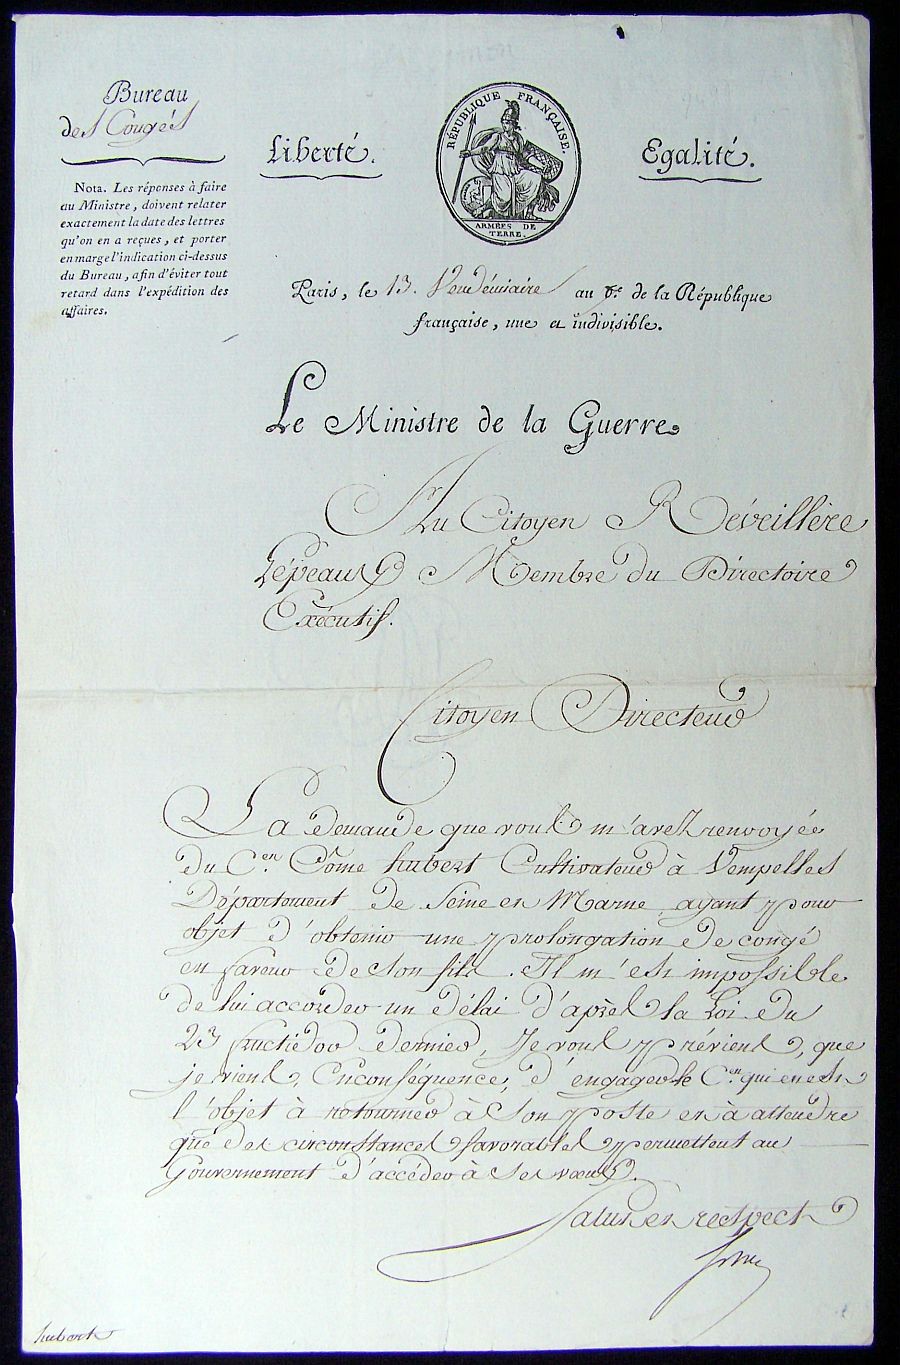 Bureau
des Congés
Nota. Les réponses à faire
au Ministre, doivent relater
exactement la date des lettres
qu'on en a reçues, et porter
en marge l'indication ci-dessus
du Bureau, afin d'éviter tout
retard dans l'expédition des
affaires.
Liberté.
RÉPUBLIQUE FRANÇAISE.
ARMÉES DE
TERRE.
Egalité.
Paris, le 13. Vendémiaire au 6.e de la République
française, une et indivisible.
Le Ministre de la Guerre
Au Citoyen Réveillère
Lépeaux Membre du Directoire
Exécutif.
Citoyen Directeur
La demande que vous m'avez renvoyée
du C.en Côme hubert Cultivateur à Vempelles
Département de Seine et Marne ayant pour
objet d'obtenir une prolongation de congé
en faveur de son fils. Il m'est impossible
de lui accorder un délai d'après la Loi du
23 fructidor dernier, Je vous préviens, que
je viens, Enconséquence, d'engager le C.en qui en est
l'objet à retourner à son poste et à attendre
que des circonstances favorables permettent au
Gouvernement d'accéder à ses vœux.
Salut et respect
hubert